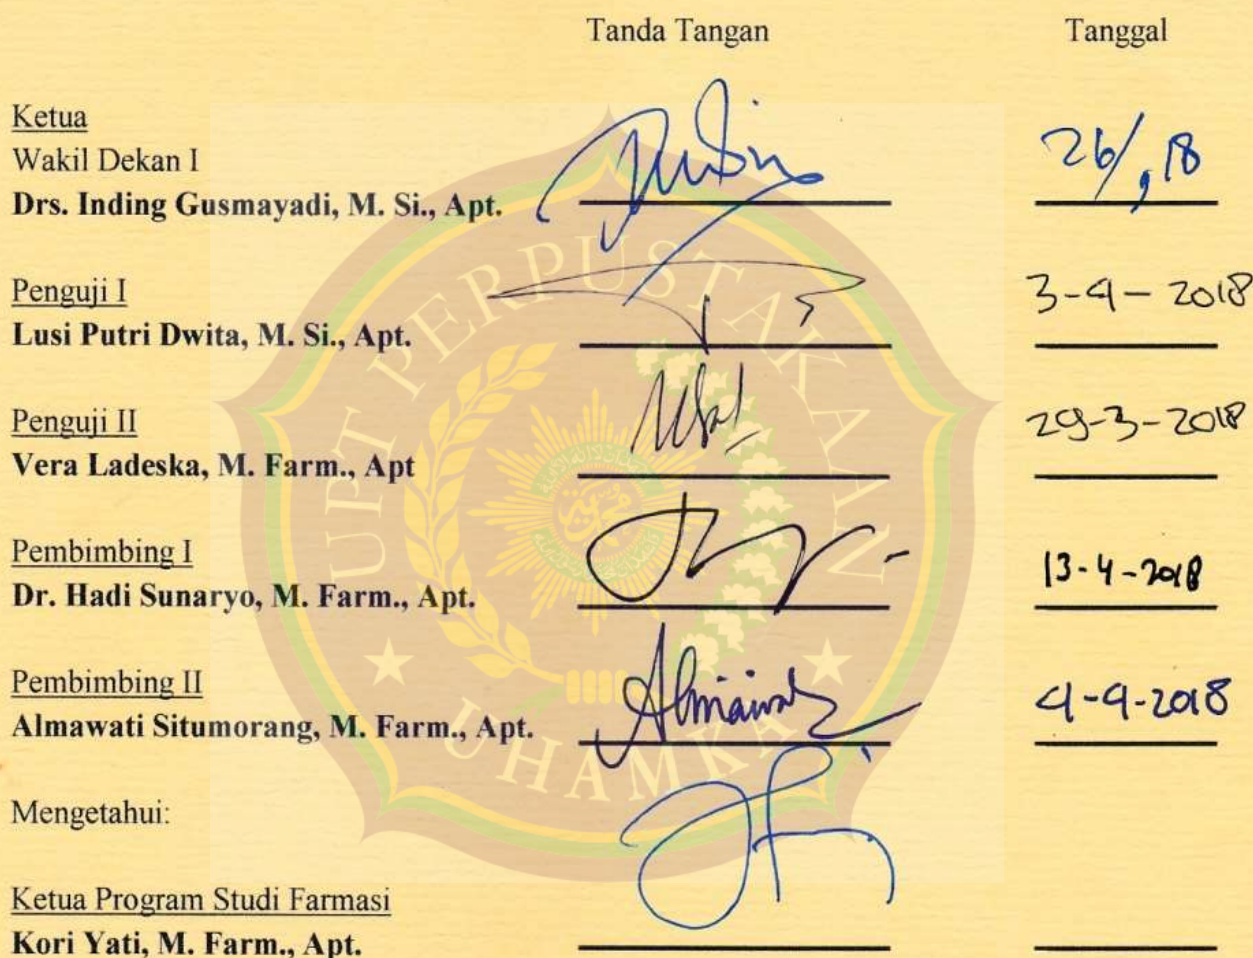 Tanda Tangan Tanggal
Ketua
Wakil Dekan I
Drs. Inding Gusmayadi, M. Si., Apt.
Penguji I
3-4-2018
Lusi Putri Dwita, M. Si., Apt.
Penguji II
29-3-2018
Vera Ladeska, M. Farm., Apt
Pembimbing I
13-4-2018
Dr. Hadi Sunaryo, M. Farm., Apt.
Pembimbing II
4-4-2018
Almawati Situmorang, M. Farm., Apt.
Mengetahui:
Ketua Program Studi Farmasi
Kori Yati, M. Farm., Apt.
UPT PERPUSTAKAAN
UHAMKA